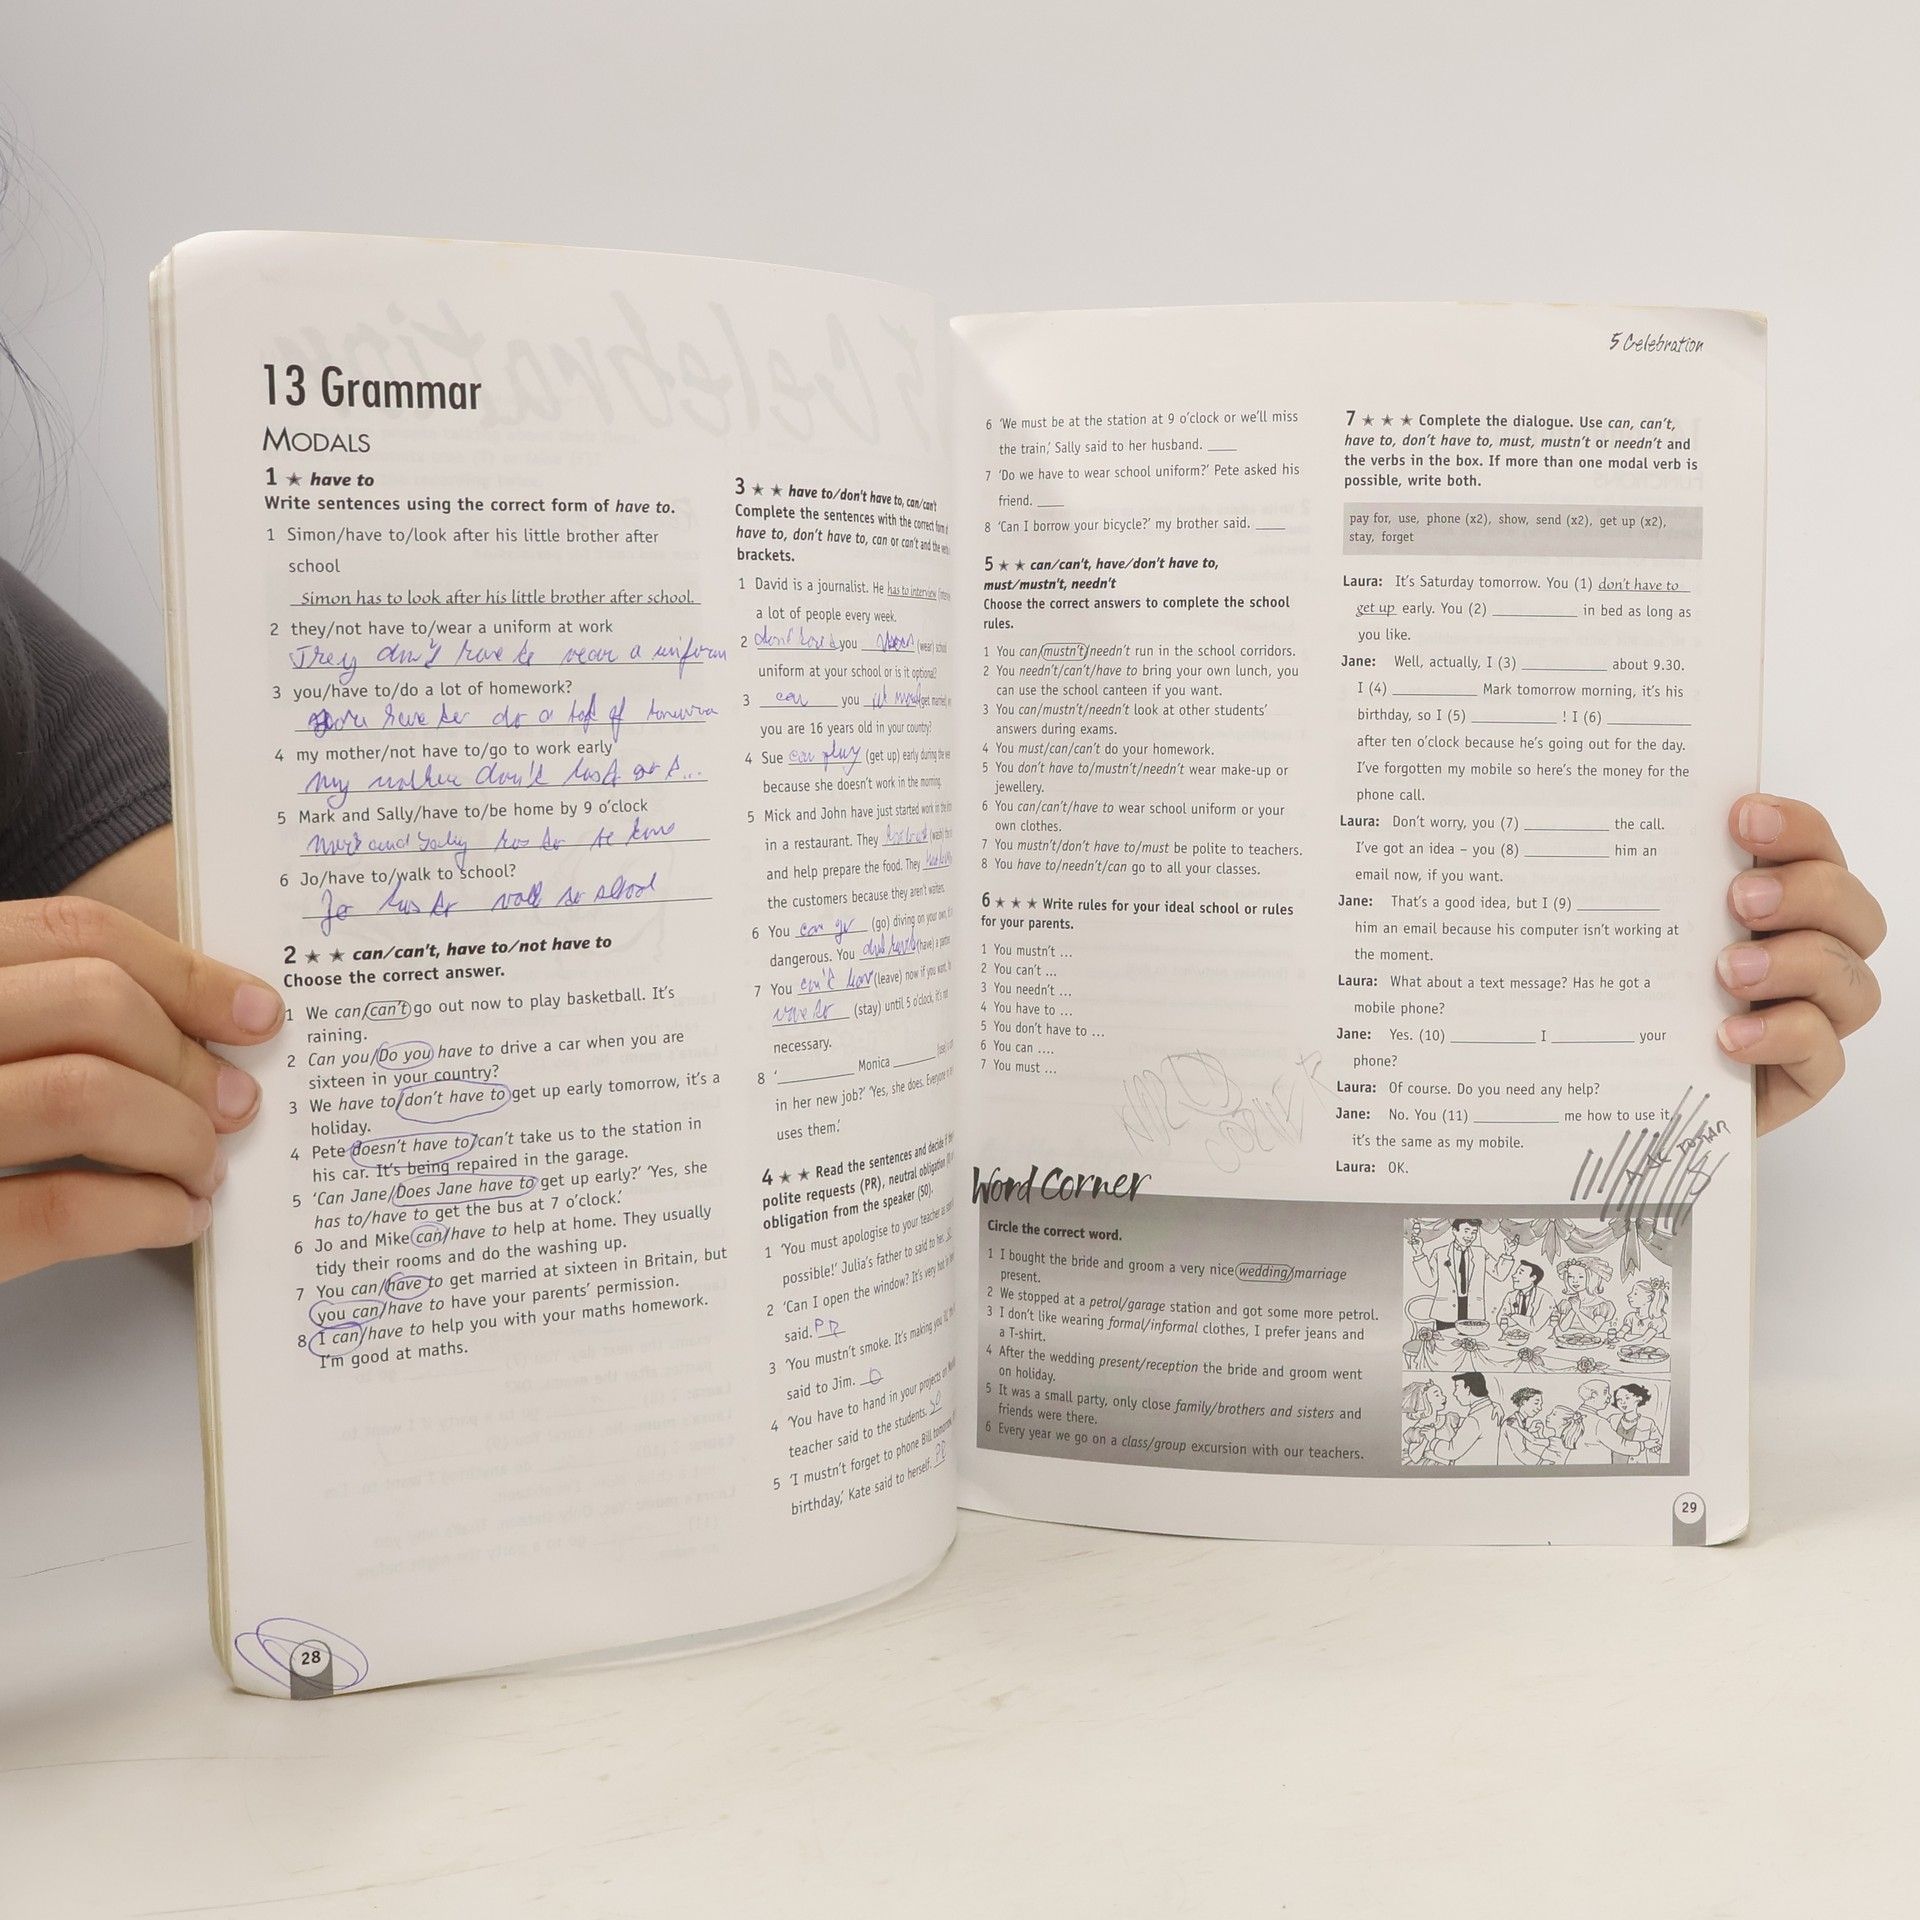 13 Grammar
MODALS
1 ★ have to
Write sentences using the correct form of have to.
1 Simon/have to/look after his little brother after
school
Simon has to look after his little brother after school.
2 they/not have to/wear a uniform at work
They don't have to wear a uniform
3 you/have to/do a lot of homework?
have to do a lot of
4 my mother/not have to/go to work early
My mother don't
5 Mark and Sally/have to/be home by 9 o'clock
Mark and Sally has to be home
6 Jo/have to/walk to school?
Jo has to walk to school
2 ★ ★ can/can't, have to/not have to
Choose the correct answer.
1 We can/can't go out now to play basketball. It's
raining.
2 Can you/Do you have to drive a car when you are
sixteen in your country?
3 We have to/don't have to get up early tomorrow, it's a
holiday.
4 Pete doesn't have to/can't take us to the station in
his car. It's being repaired in the garage.
5 'Can Jane/Does Jane have to get up early?' 'Yes, she
has to/have to get the bus at 7 o'clock.'
6 Jo and Mike can/have to help at home. They usually
tidy their rooms and do the washing up.
7 You can/have to get married at sixteen in Britain, but
you can/have to have your parents' permission.
8 I can/have to help you with your maths homework.
I'm good at maths.
28
3 ★ ★ have to/don't have to, can/can't
Complete the sentences with the correct form of
have to, don't have to, can or can't and the verbs
brackets.
1 David is a journalist. He has to interview
a lot of people every week.
2 you (wear) school
uniform at your school or is it optional?
3 can you (get married)
you are 16 years old in your country?
4 Sue can play (get up) early during the
because she doesn't work in the morning.
5 Mick and John have just started work in the
in a restaurant. They (wash)
and help prepare the food. They
the customers because they aren't waiters.
6 You can go (go) diving on your own,
dangerous. You (have) a partner
7 You can't (leave) now if you want,
(stay) until 5 o'clock, it's not
necessary.
8 ' Monica
in her new job?' 'Yes, she does. Everyone
uses them.'
4 ★ ★ Read the sentences and decide if
polite requests (PR), neutral obligation
obligation from the speaker (SO).
1 'You must apologise to your teacher as
possible!' Julia's father to said to her.
2 'Can I open the window? It's very hot in
said. PR
3 'You mustn't smoke. It's making you ill,'
said to Jim. O
4 'You have to hand in your projects on
teacher said to the students.
5 'I mustn't forget to phone Bill tomorrow,
birthday,' Kate said to herself. PR
5 Celebration
6 'We must be at the station at 9 o'clock or we'll miss
the train,' Sally said to her husband.
7 'Do we have to wear school uniform?' Pete asked his
friend.
8 'Can I borrow your bicycle?' my brother said.
5 ★ ★ can/can't, have/don't have to,
must/mustn't, needn't
Choose the correct answers to complete the school
rules.
1 You can/mustn't/needn't run in the school corridors.
2 You needn't/can't/have to bring your own lunch, you
can use the school canteen if you want.
3 You can/mustn't/needn't look at other students'
answers during exams.
4 You must/can/can't do your homework.
5 You don't have to/mustn't/needn't wear make-up or
jewellery.
6 You can/can't/have to wear school uniform or your
own clothes.
7 You mustn't/don't have to/must be polite to teachers.
8 You have to/needn't/can go to all your classes.
6 ★ ★ ★ Write rules for your ideal school or rules
for your parents.
1 You mustn't ...
2 You can't ...
3 You needn't ...
4 You have to ...
5 You don't have to ...
6 You can ....
7 You must ...
7 ★ ★ ★ Complete the dialogue. Use can, can't,
have to, don't have to, must, mustn't or needn't and
the verbs in the box. If more than one modal verb is
possible, write both.
pay for, use, phone (x2), show, send (x2), get up (x2),
stay, forget
Laura: It's Saturday tomorrow. You (1) don't have to
get up early. You (2) in bed as long as
you like.
Jane: Well, actually, I (3) about 9.30.
I (4) Mark tomorrow morning, it's his
birthday, so I (5) ! I (6)
after ten o'clock because he's going out for the day.
I've forgotten my mobile so here's the money for the
phone call.
Laura: Don't worry, you (7) the call.
I've got an idea – you (8) him an
email now, if you want.
Jane: That's a good idea, but I (9)
him an email because his computer isn't working at
the moment.
Laura: What about a text message? Has he got a
mobile phone?
Jane: Yes. (10) I your
phone?
Laura: Of course. Do you need any help?
Jane: No. You (11) me how to use it,
it's the same as my mobile.
Laura: OK.
Word Corner
Circle the correct word.
1 I bought the bride and groom a very nice wedding/marriage
present.
2 We stopped at a petrol/garage station and got some more petrol.
3 I don't like wearing formal/informal clothes, I prefer jeans and
a T-shirt.
4 After the wedding present/reception the bride and groom went
on holiday.
5 It was a small party, only close family/brothers and sisters and
friends were there.
6 Every year we go on a class/group excursion with our teachers.
29